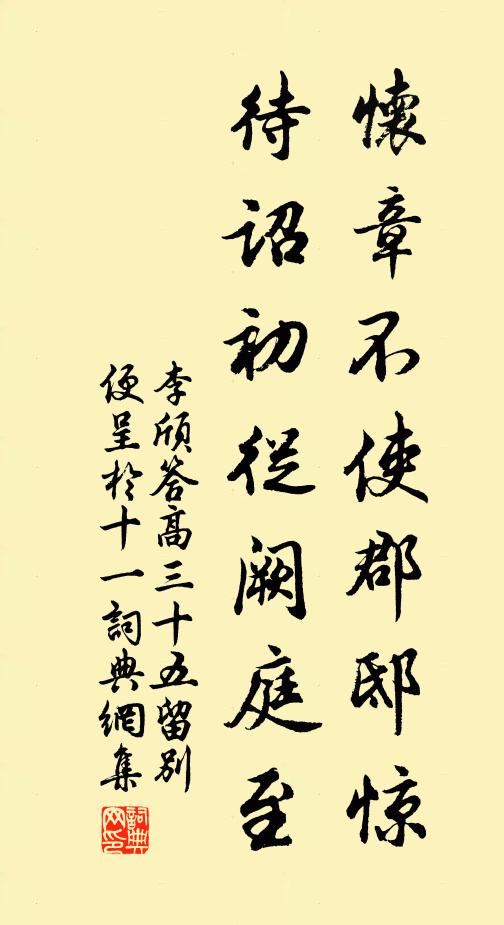 懷章不使郡邸惊
待詔初從闕庭至
李頎答高三十五留别
便呈於十一詞典網集
詞典
网印